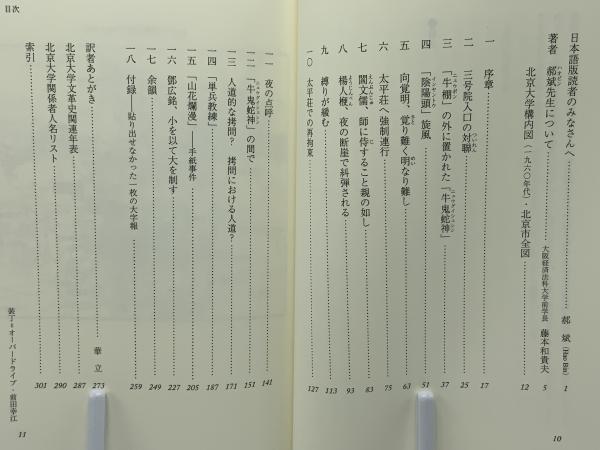 日本語版読者のみなさんへ 郝 斌 (Hao Bin) 1
著者 郝斌先生について 大阪経済法科大学前学長 藤本和貴夫 5
北京大学構内図(一九六〇年代)・北京市全図 12
一 序章 17
二 三号院入口の対聯 25
三 「牛棚」の外に置かれた「牛鬼蛇神」 37
四 「陰陽頭」旋風 51
五 向覚明、覚り難く明なり難し 63
六 太平荘へ強制連行 75
七 閻文儒、師に侍すること親の如し 83
八 楊人楩、夜の断崖で糾弾される 93
九 縛りが緩む 113
一〇 太平荘での再拘束 127
10
目次
一一 夜の点呼 141
一二 「牛鬼蛇神」の間で 151
一三 人道的な拷問? 拷問における人道? 171
一四 「単兵教練」 187
一五 「山花爛漫」——手紙事件 205
一六 鄧広銘、小を以て大を制す 227
一七 余韻 249
一八 付録——貼り出せなかった一枚の大字報 259
訳者あとがき 華 立 273
北京大学文革史関連年表 287
北京大学関係者人名リスト 290
索引 301
装丁=オーバードライブ・前田幸江
11